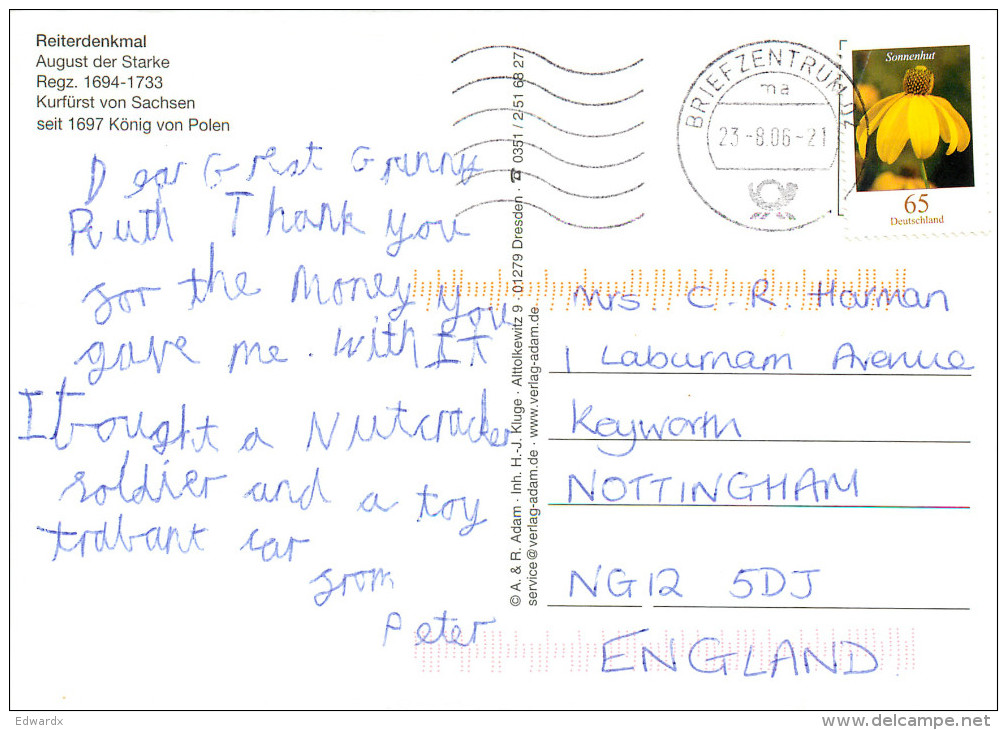 Reiterdenkmal
August der Starke
Regz. 1694-1733
Kurfürst von Sachsen
seit 1697 König von Polen
Dear Great Granny
Ruth Thank you
for the Money you
gave me. With IT
I bought a Nutcracker
soldier and a toy
trabant car
from
Peter
© A. & R. Adam · Inh. H.-J. Kluge · Alttolkewitz 9 · 01279 Dresden · ☎ 0351 / 2 51 68 27
service@verlag-adam.de · www.verlag-adam.de
BRIEFZENTRUM 01
ma
23.-8.06-21
Sonnenhut
65
Deutschland
Mrs. C. R. Harman
1 Laburnam Avenue
Keyworth
NOTTINGHAM
NG12 5DJ
ENGLAND
Edwardx
delcampe.net